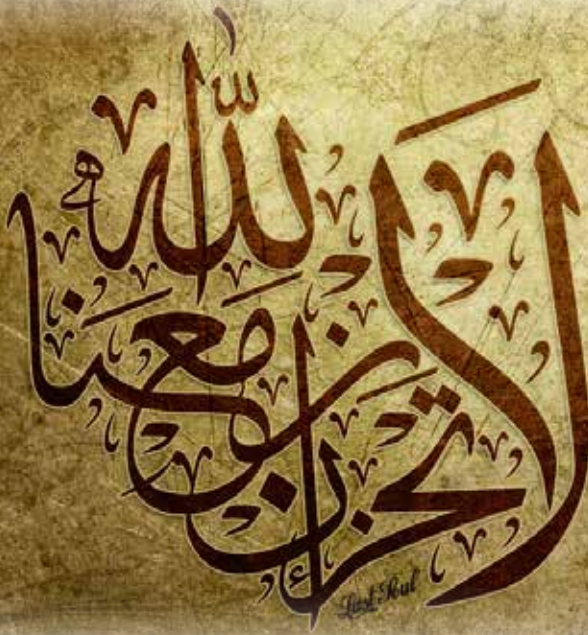 لا تحزن إن الله معنا
Lost Soul